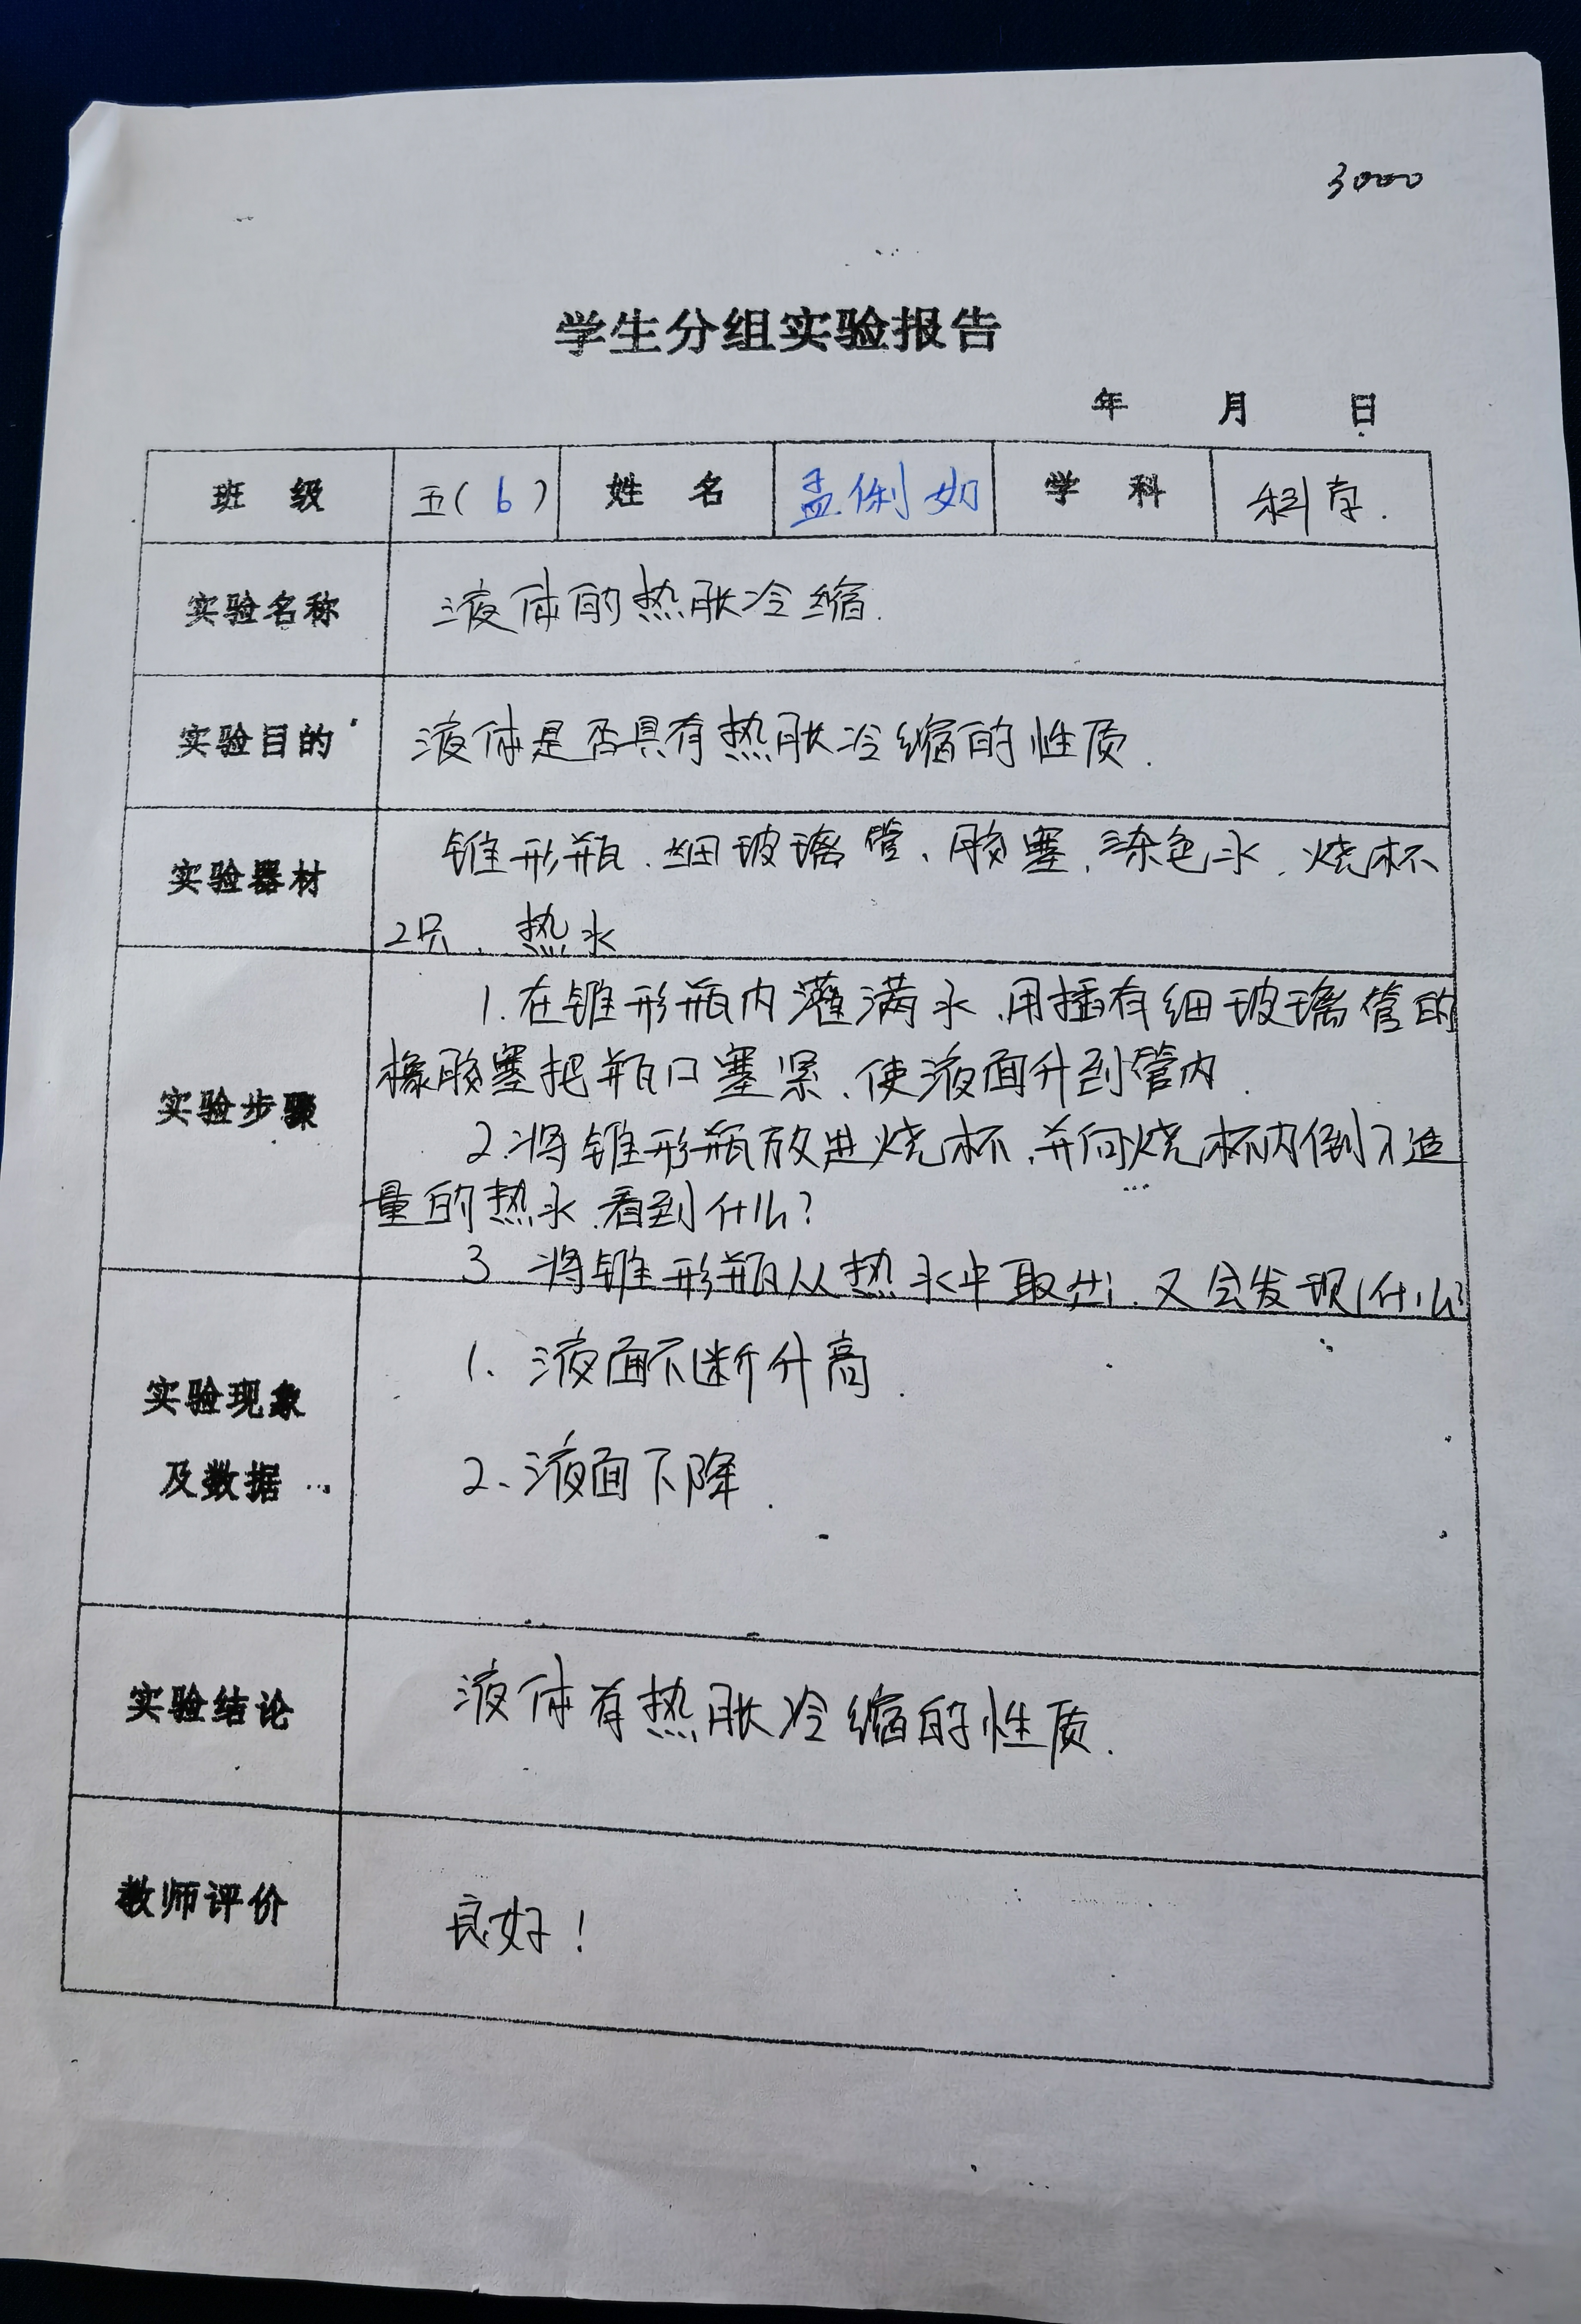 3000
学生分组实验报告
年 月 日
班 级 五(6) 姓 名 孟俐如 学 科 科学.
实验名称 液体的热胀冷缩.
实验目的 液体是否具有热胀冷缩的性质.
实验器材 锥形瓶、细玻璃管、胶塞、染色水、烧杯
2只、热水
实验步骤
1.在锥形瓶内灌满水,用插有细玻璃管的
橡胶塞把瓶口塞紧、使液面升到管内.
2.将锥形瓶放进烧杯,并向烧杯内倒入适
量的热水,看到什么?
3 将锥形瓶从热水中取出,又会发现什么?
实验现象
及数据
1. 液面不断升高.
2、液面下降.
实验结论 液体有热胀冷缩的性质.
教师评价 良好!